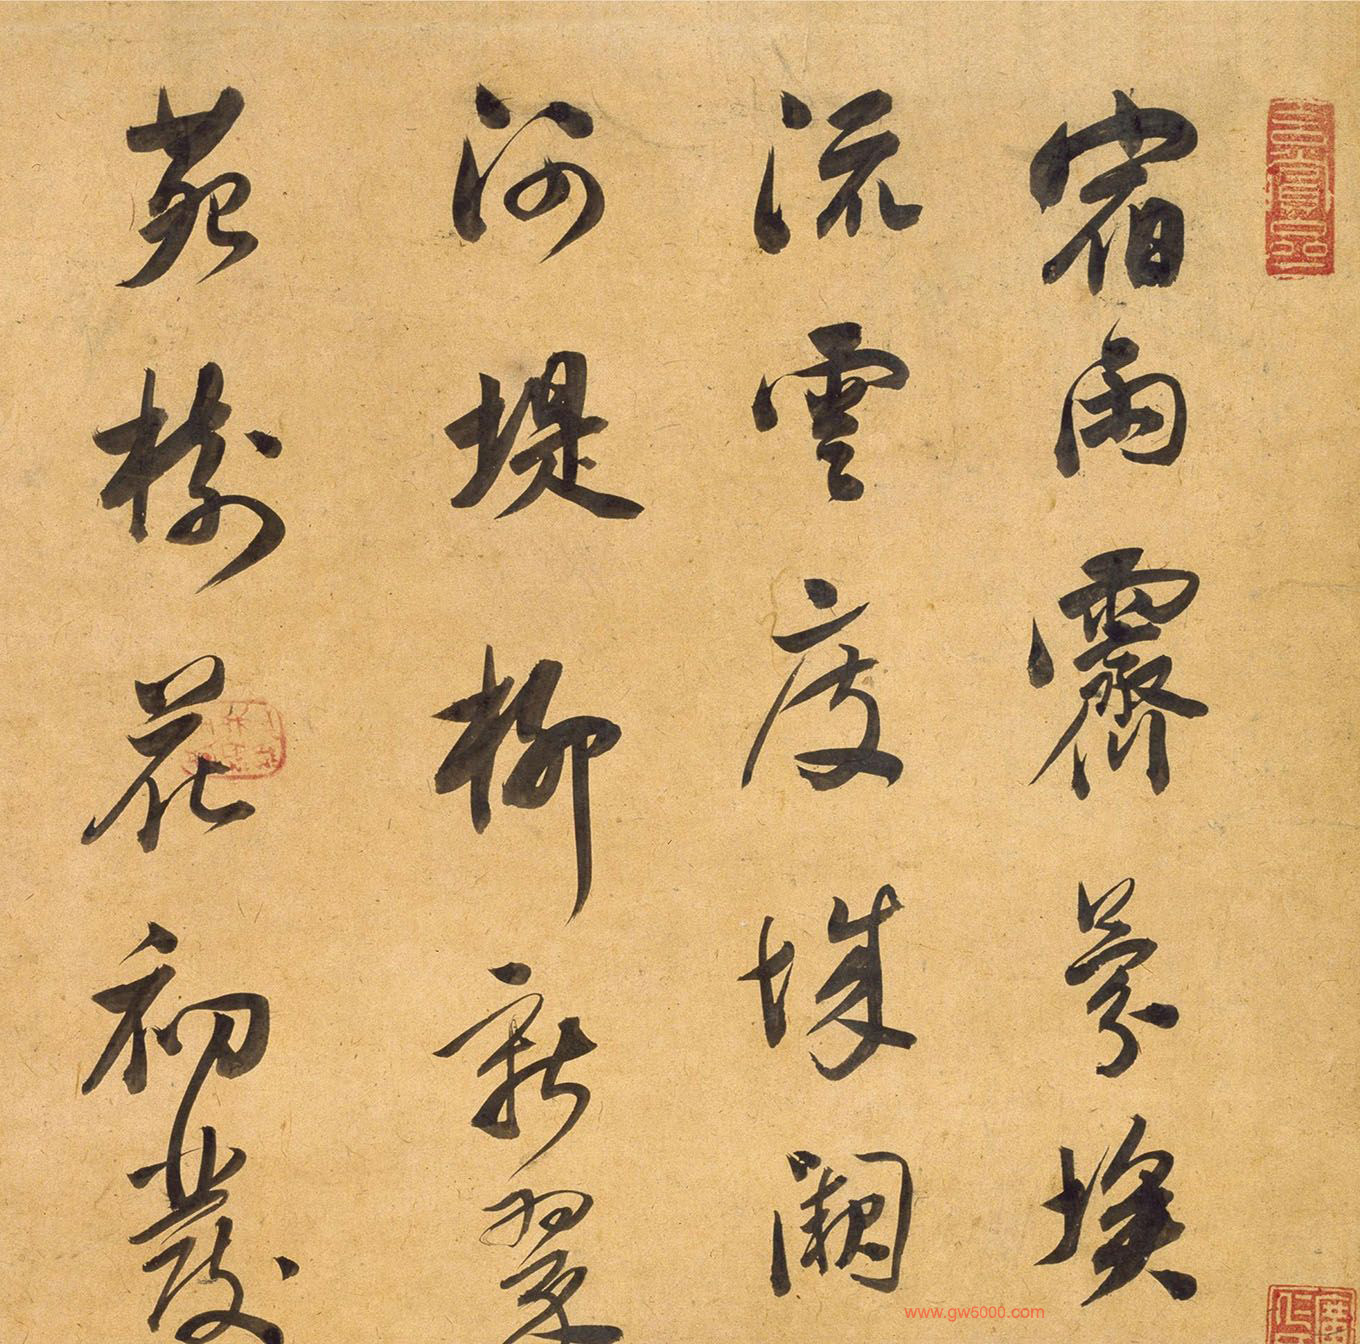 宿雨霽芬埃
流雲度城闕
河堤柳新翠
苑樹花初發
www.gw6000.com